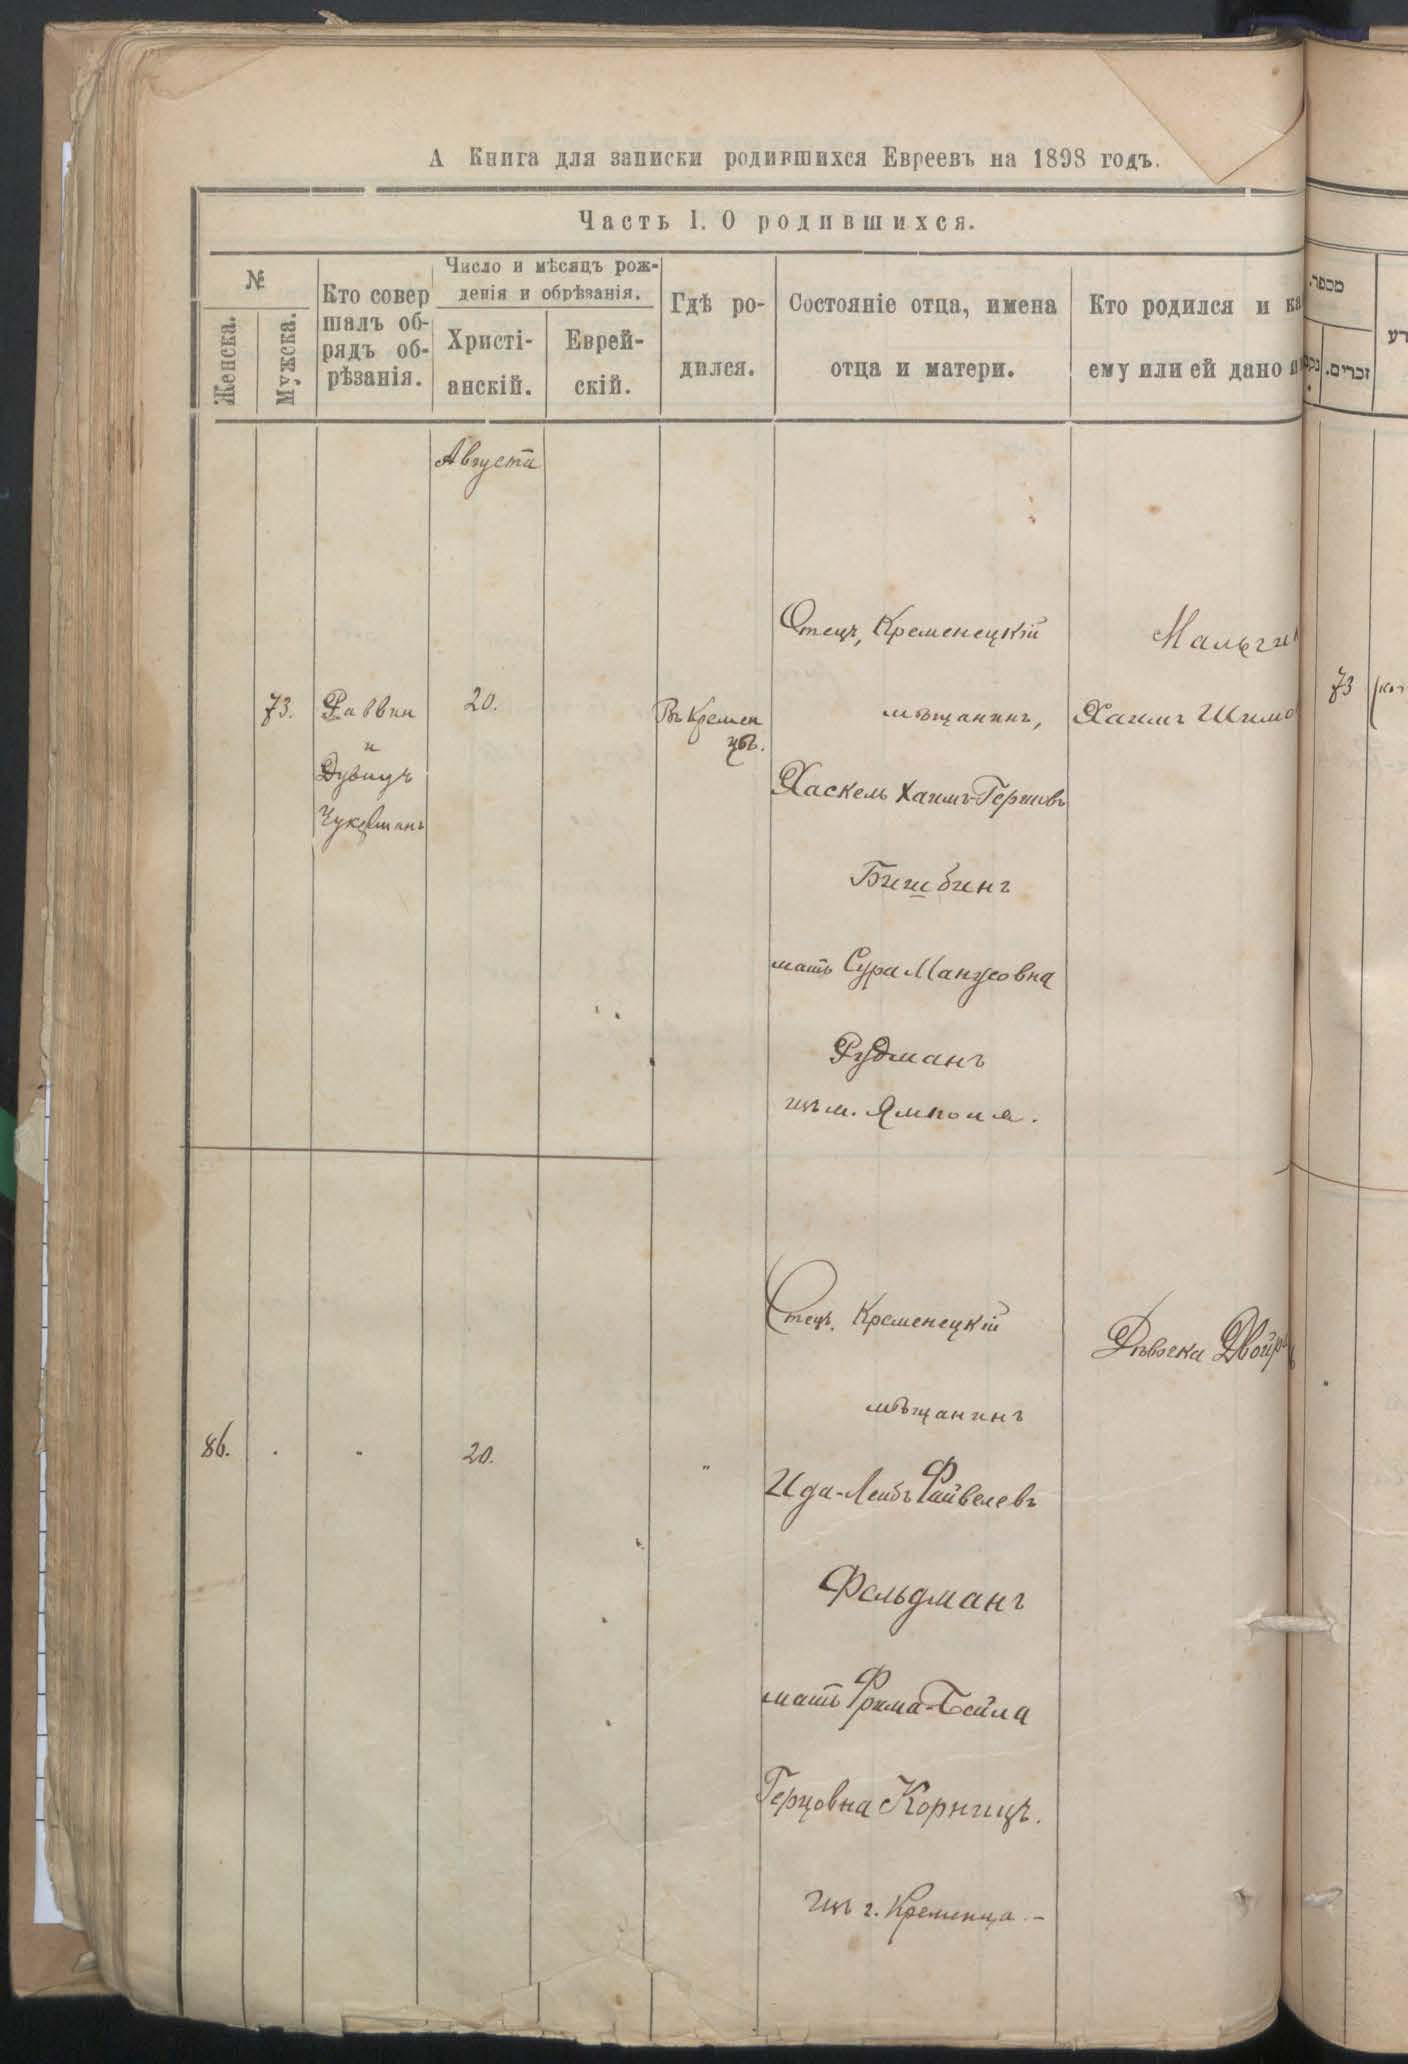 А Книга для записки родившихся Евреевъ на 1898 годъ.
Часть I. О родившихся.
№
Женска.
Мужска.
Кто совер
шалъ об-
рядъ об-
рѣзанія.
Число и мѣсяцъ рож-
денія и обрѣзанія.
Христі-
анскій.
Еврей-
скій.
Гдѣ ро-
дился.
Состояніе отца, имена
отца и матери.
Кто родился и ка
ему или ей дано и
Августа
73.
Раввин
и
Дувидъ
20.
Въ Кремен
цѣ.
Отецъ, Кременецкій
мѣщанинъ,
Хаскель Хаимъ-Гершовъ
Бишбинъ
мать Сура Манусовна
Рудманъ
изъ м. Ямполя.
Мальчик
Хаимъ Шимо
86.
.
"
20.
"
Отецъ, Кременецкій
мѣщанинъ
Ида-Лейбъ Файвелевъ
Фельдманъ
мать Фрима-Бейла
Герцовна Корницъ.
изъ г. Кременца. –
Дѣвочка Двойра
מספר.
זכרים.
73